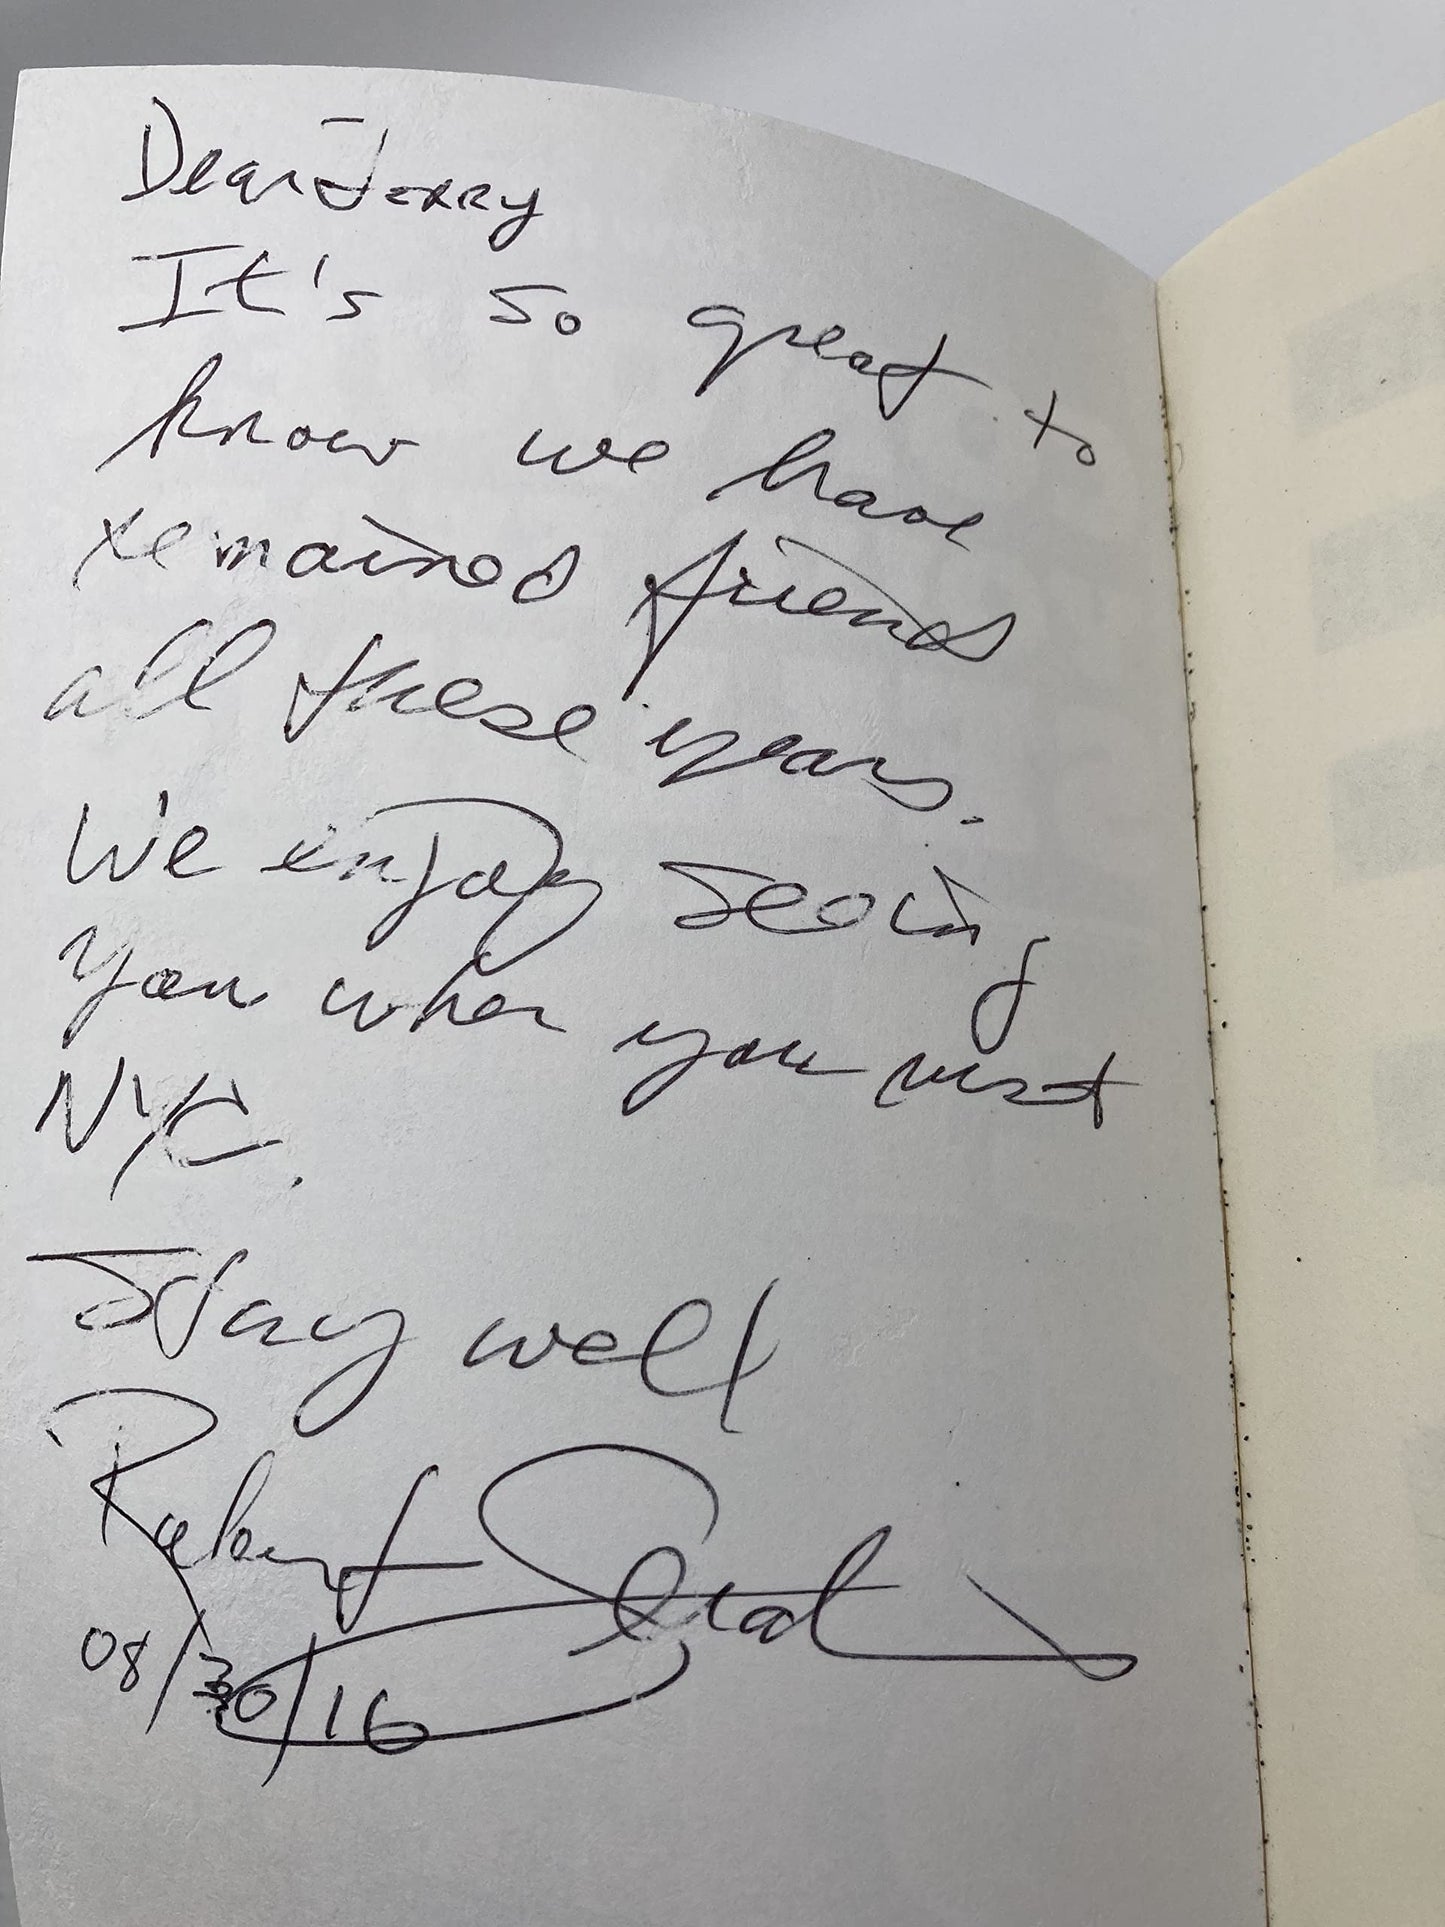 Dear Jerry
It's so great to
know we have
remained friends
all these years.
We enjoy seeing
you when you visit
NYC.
Stay well
Robert
08/30/16